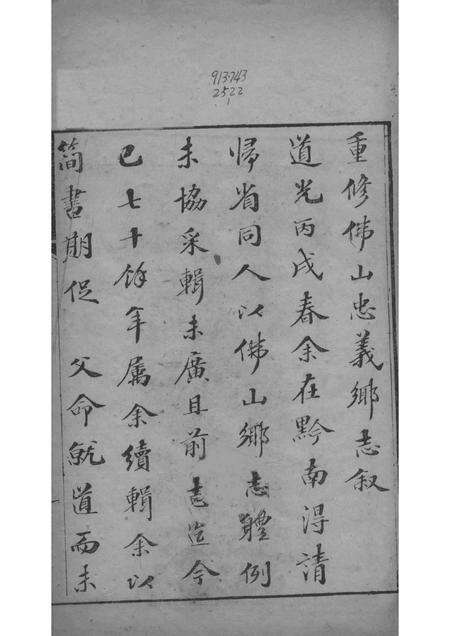 913.743
2522
1
重修佛山忠義鄉志叙
道光丙戌春余在黔南得請
歸省同人以佛山鄉志體例
未協采輯未廣且前志迄今
已七十餘年属余續輯余以
簡書期促父命就道而未